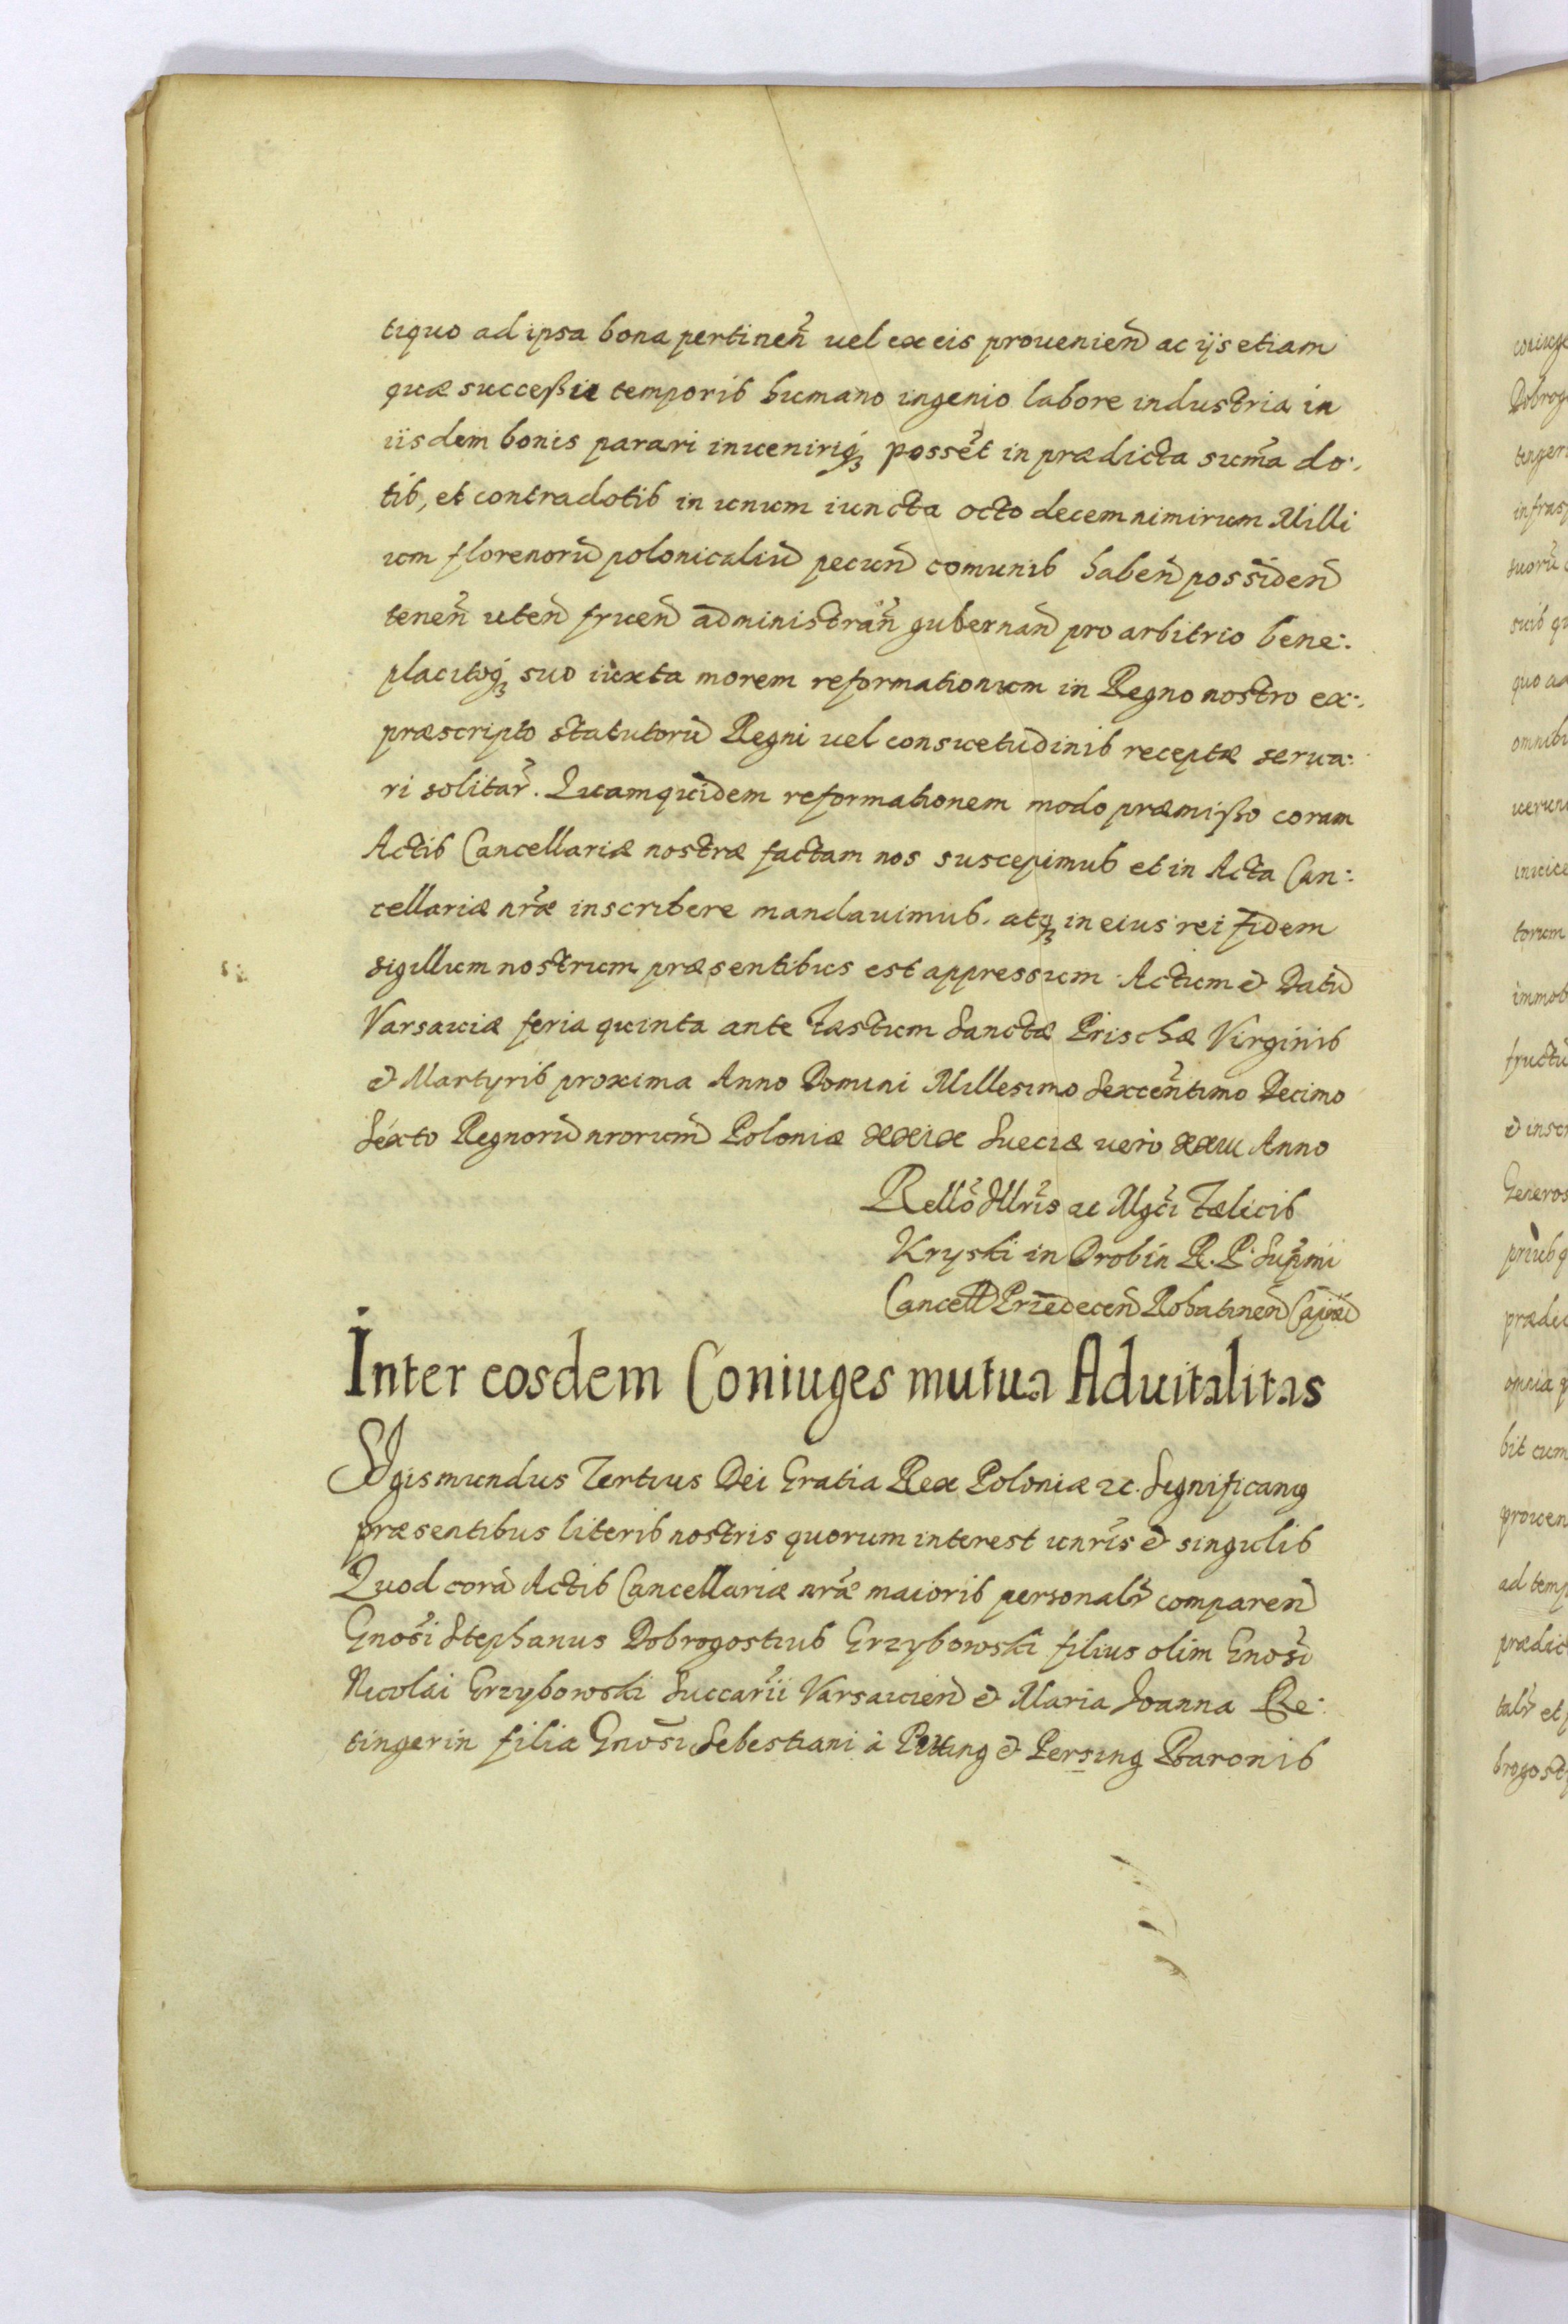 tiquo ad ipsa bona pertineñ uel ex eis proueniẽn ac ijs etiam
quæ successu temporis humano ingenio labore industria in
iisdem bonis parari inuenirique possẽt in prædicta sum̃a do:
tis, et contradotis in unum iuncta octodecem nimirum Milli
um florenorũ polonicaliũ pecuñ comunis habeñ possideñ
teneñ uteñ frueñ administrañ gubernañ pro arbitrio bene:
placitoq₃ suo iuxta morem reformationum in Regno nostro ex:
præscripto statutorũ Regni uel consuetudinis receptæ serua:
ri solitar̃. Quamquidem reformationem modo præmisso coram
Actis Cancellariæ nostræ factam nos suscepimus et in Acta Can:
cellariæ nr̃æ inscribere mandauimus. atq₃ in eius rei fidem
sigillum nostrum præsentibus est appressum. Actum & Datũ
Varsauiæ feria quinta ante Fæstum Sanctæ Prischæ Virginis
& Martyris proxima Anno Domini Millesimo Sexcen̄timo Decimo
Sexto Regnorũ nrorum̃ Poloniæ xxix Sueciæ uero xxiii Anno
Rellõ Illr̃is ac Mgc̃i Fælicis
Kryski in Drobin R. P. Sup̃mi
Cancell̃ Prꝛedeceñ Rohatineñ Capnei
Inter eosdem Coniuges mutua Aduitalitas
Sigismundus Tertius Dei Gratia Rex Poloniæ ꝛc. Significamus
præsentibus literis nostris quorum interest unr̃is & singulis
Quod corã Actis Cancellariæ nr̃æ maioris personalr̃ compareñ
Gnos̃i Stephanus Dobrogostius Grzybowski filius olim Gnos̃i
Nicolai Grzybowski Succar̃ii Varsauieñ & Maria Joanna Re:
tingerin filia Gnos̃i Sebestiani à Pitting & Persing Baronis